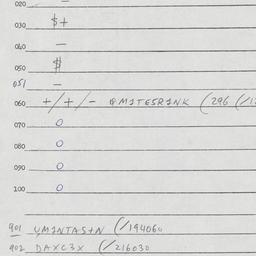 020 —
030 $+
040 —
050 $
051 —
060 +/+/- @M1TES1NK (296 (/1
070 0
080 0
090 0
100 0
901 YM1NTAS+N (/194060
902 DAXC3X (/216030